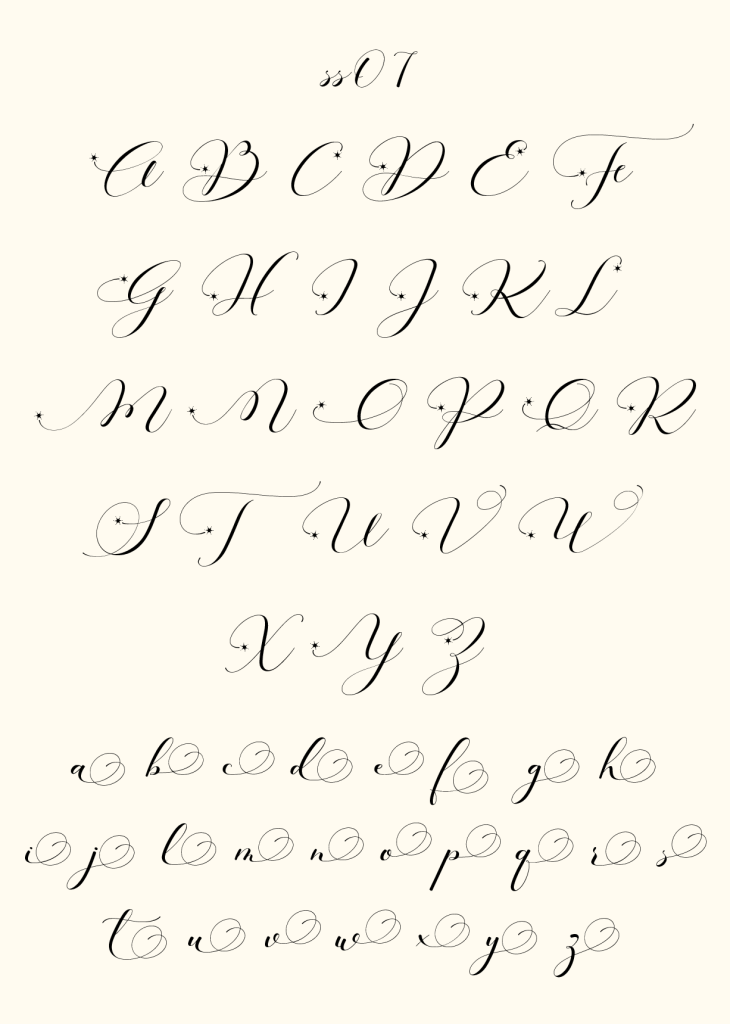 ss07
A B C D E Fe
G H I J K L
M N O P Q R
S T U V W
X Y Z
a b c d e f g h
i j l m n o p q r s
t u v w x y z